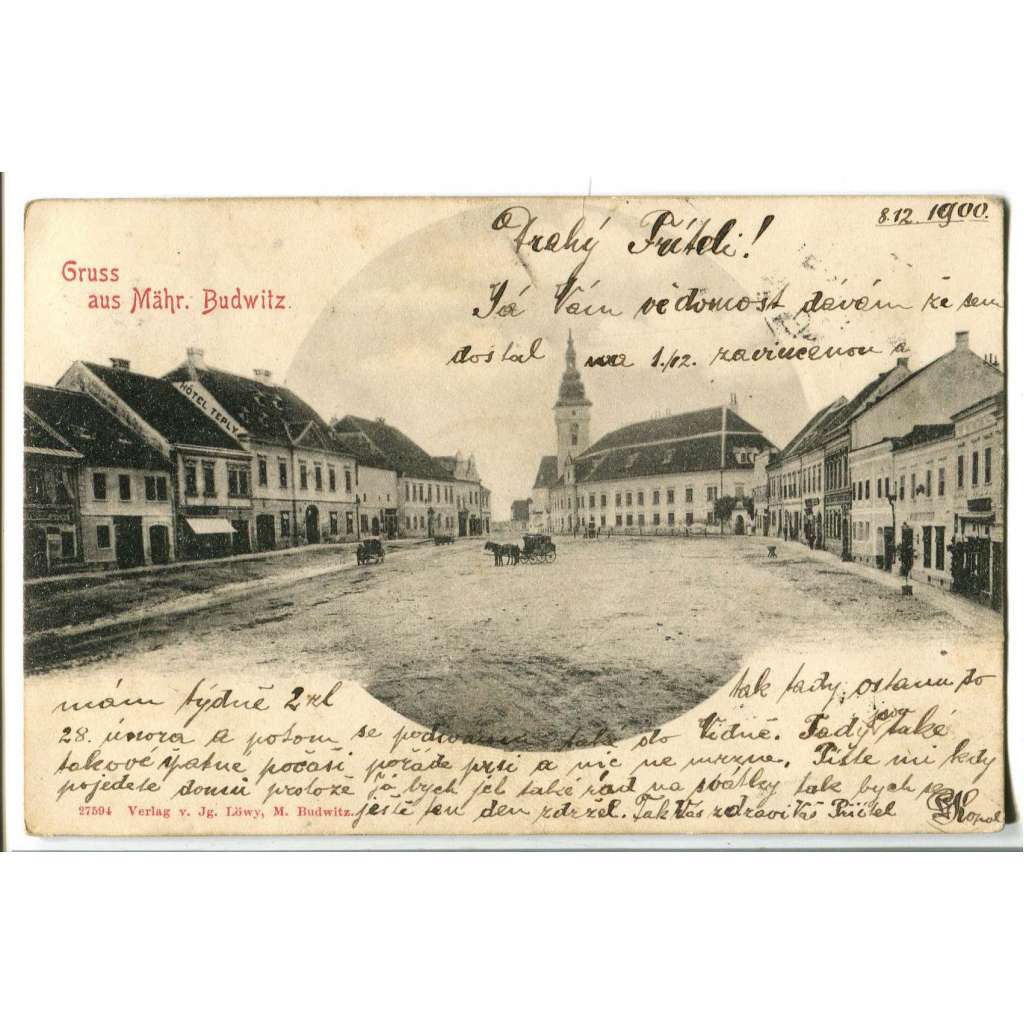 8.12. 1900.
Drahý Příteli!
Gruss
aus Mähr. Budwitz.
Já Vám vědomost dávám že sem
dostal na 1./12. zavincenou a
HÔTEL TEPLY
mám týdně 2 zl tak tady ostanu do
28. února a potom se podívám tak do Vídně. Tady sou také
takové špatné počasí pořáde prsi a nic ne mrzne. Pište mi kdy
pojedete domů protože já bych jel také rád na svátky tak bych se
ještě ten den zdržel. Tak Vás zdraví Váš Přítel
27594 Verlag v. Jg. Löwy, M. Budwitz.